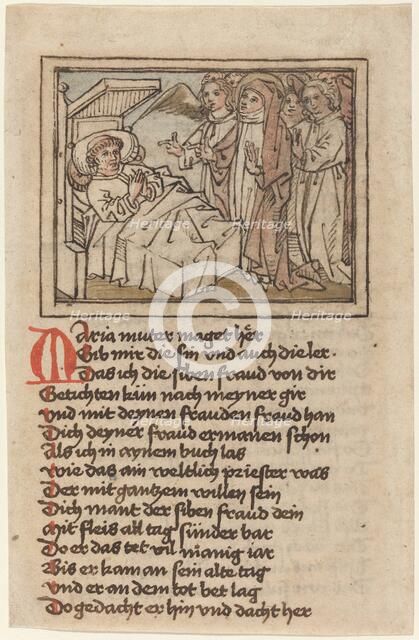 Maria muter mager hër
Gib mir die sin vnd auch die ler
Das ich die siben fraud von dir
Getichten kün nach meyner gir
vnd mit deynen frauden fraud han
Dich deyner fraud ermanen schon
Als ich in aynem buch las
wie das ain weltlich priester was
Der mit gantzem willen sein
Dich mant der siben fraud dein
mit fleis all tag sunder bar
Do er das tet vil manig iar
Bis er kam an sein alte tag
vnd er an dem tot bet lag
Do gedacht er hin vnd dacht her
Heritage
Heritage
Heritage
Heritage
Heritage
Heritage